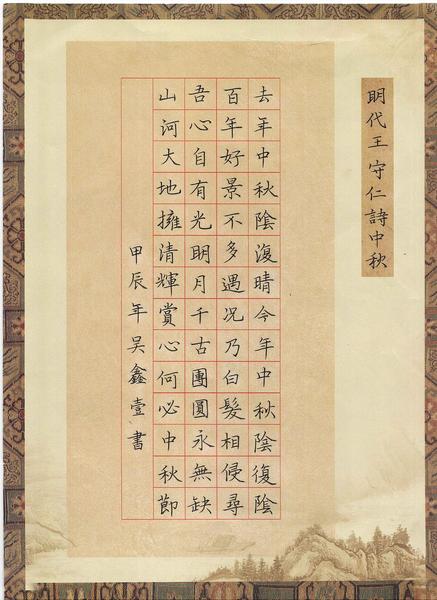 明代王守仁詩中秋
去年中秋陰復晴今年中秋陰復陰
百年好景不多遇况乃白髮相侵尋
吾心自有光明月千古團圓永無缺
山河大地擁清輝賞心何必中秋節
甲辰年吴鑫壹書